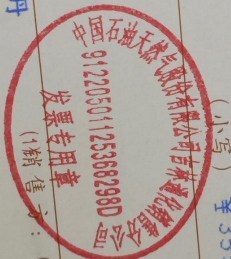 中国石油天然气股份有限公司吉林通化销售分公司
91220501125368298D
发票专用章
(1)
销售方:
(小写)
¥35